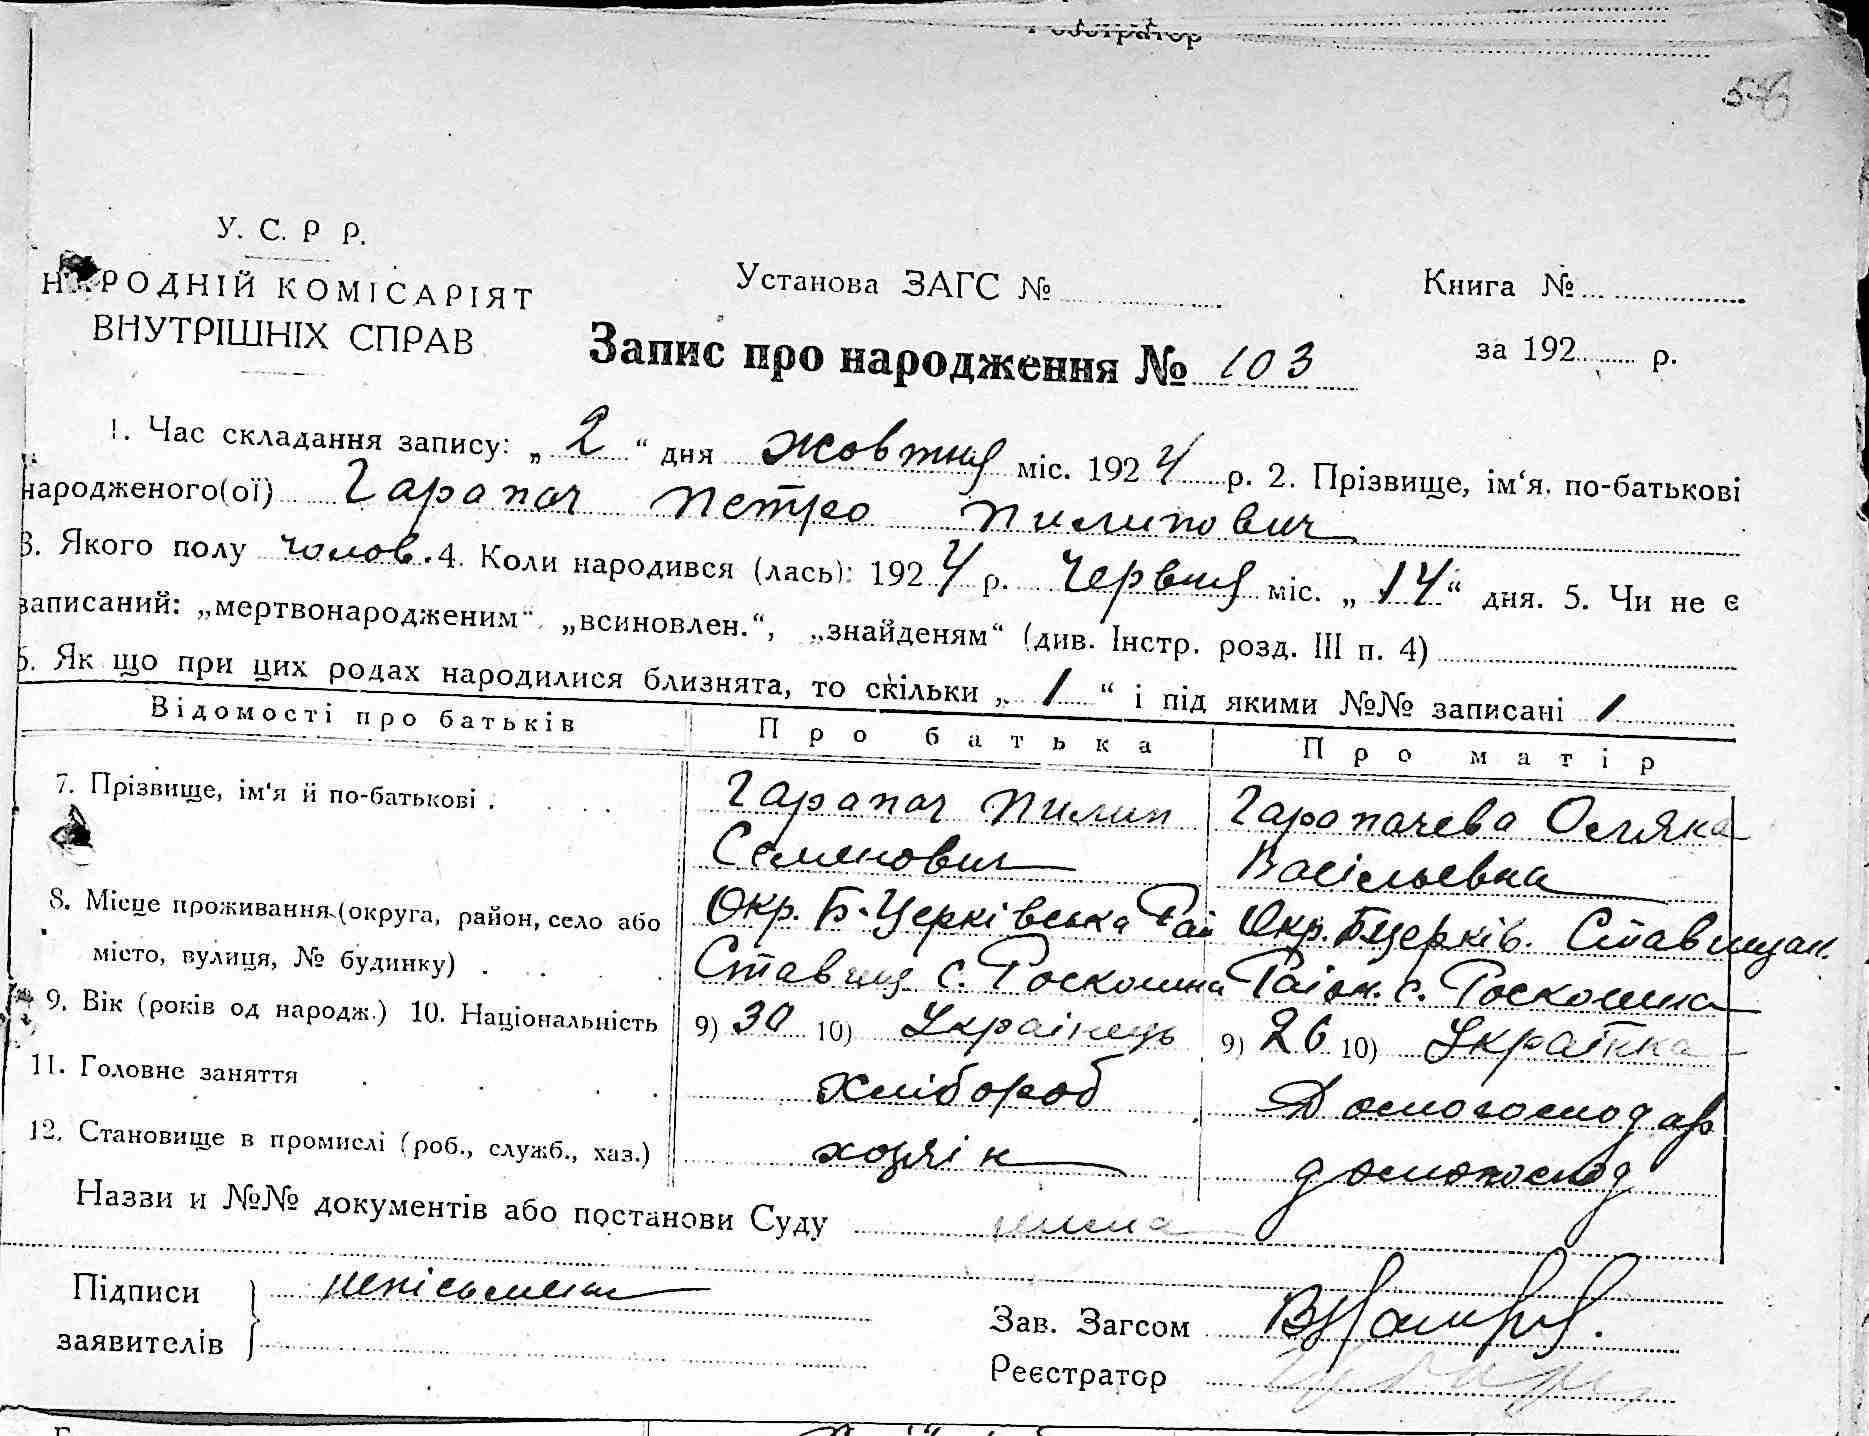 Реєстратор
У. С. Р Р.
НАРОДНІЙ КОМІСАРІЯТ
ВНУТРІШНІХ СПРАВ
Установа ЗАГС №
Книга №
Запис про народження № 103
за 192 р.
1. Час складання запису: „ 2 “ дня жовтня міс. 192 4 р. 2. Прізвище, ім‘я, по-батькові
народженого(ої) Гарапач Петро Пилипович
3. Якого полу чолов. 4. Коли народився (лась): 192 4 р. Червня міс. „ 14 “ дня. 5. Чи не є
записаний: „мертвонародженим“, „всиновлен.“, „знайденям“ (див. Інстр. розд. III п. 4)
6. Як що при цих родах народилися близнята, то скільки „ 1 “ і під якими №№ записані 1
Відомості про батьків Про батька Про матір
7. Прізвище, ім‘я й по-батькові . Гарапач Пилип Гарапачева Оляна
Семенович Васільевна
8. Місце проживання (округа, район, село або Окр. Б-Церківська Рай Окр. Бцерків. Ставищан.
місто, вулиця, № будинку) . Ставищ с. Роскошна Раіон. с. Роскошна
9. Вік (років од народж.) 10. Національність 9) 30 10) Украінець 9) 26 10) Українка
11. Головне заняття Хлібороб Домогосподар
12. Становище в промислі (роб., служб., хаз.) хозяін домогоспод
Назви и №№ документів або постанови Суду нима
Підписи непісьмени
заявителів
Зав. Загсом
Реєстратор